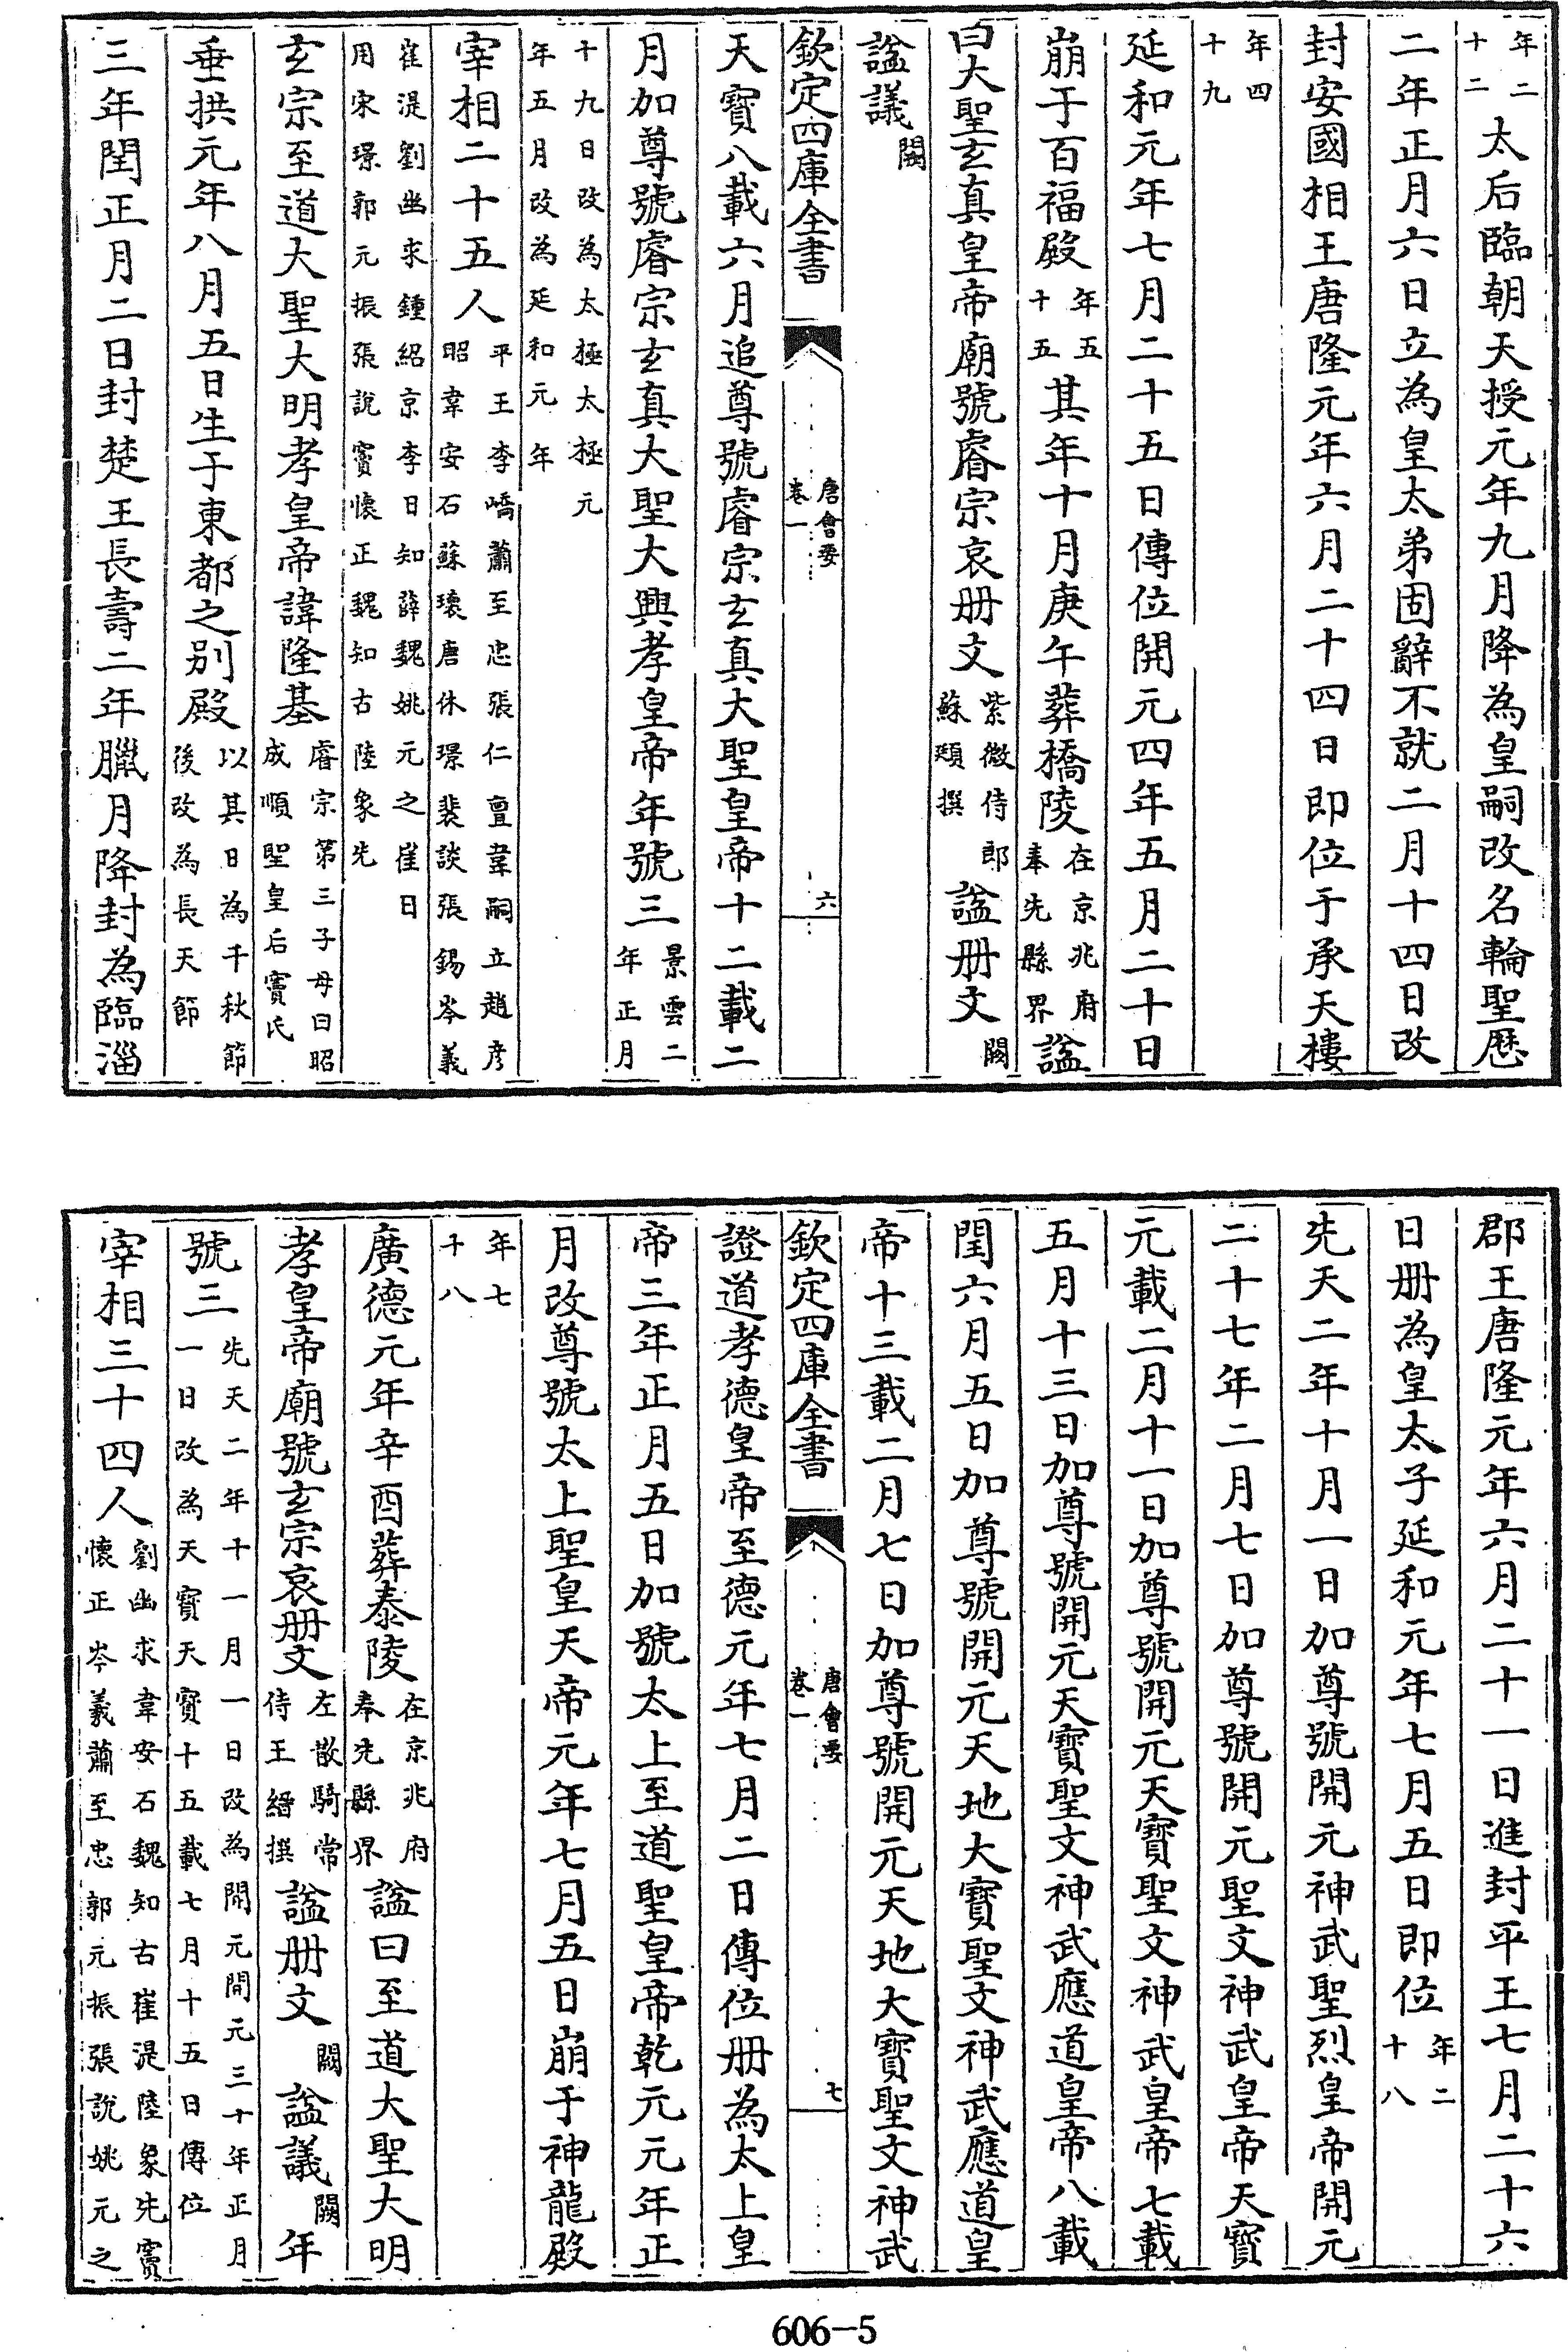 年二十二太后臨朝天授元年九月降為皇嗣改名輪聖厯
二年正月六日立為皇太弟固辭不就二月十四日改
封安國相王唐隆元年六月二十四日即位于承天樓
年四十九
延和元年七月二十五日傳位開元四年五月二十日
崩于百福殿年五十五其年十月庚午葬橋陵在京兆府奉先縣界諡
曰大聖玄真皇帝廟號睿宗哀册文紫微侍郎蘇頲撰諡册文闕
諡議闕
欽定四庫全書 唐會要卷一 六
天寶八載六月追尊號睿宗玄真大聖皇帝十二載二
月加尊號睿宗玄真大聖大興孝皇帝年號三景雲二年正月
十九日改為太極太極元年五月改為延和元年
宰相二十五人平王李嶠蕭至忠張仁亶韋嗣立趙彦昭韋安石蘇瓌唐休璟裴談張錫岑羲
崔湜劉幽求鍾紹京李日知薛魏姚元之崔日用宋璟郭元振張説竇懷正魏知古陸象先
玄宗至道大聖大明孝皇帝諱隆基睿宗第三子母曰昭成順聖皇后竇氏
垂拱元年八月五日生于東都之别殿以其日為千秋節後改為長天節
三年閏正月二日封楚王長壽二年臘月降封為臨淄
郡王唐隆元年六月二十一日進封平王七月二十六
日册為皇太子延和元年七月五日即位年二十八
先天二年十月一日加尊號開元神武聖烈皇帝開元
二十七年二月七日加尊號開元聖文神武皇帝天寶
元載二月十一日加尊號開元天寶聖文神武皇帝七載
五月十三日加尊號開元天寶聖文神武應道皇帝八載
閏六月五日加尊號開元天地大寶聖文神武應道皇
帝十三載二月七日加尊號開元天地大寶聖文神武
欽定四庫全書 唐會要卷一 七
證道孝德皇帝至德元年七月二日傳位册為太上皇
帝三年正月五日加號太上至道聖皇帝乾元元年正
月改尊號太上聖皇天帝元年七月五日崩于神龍殿
年七十八
廣德元年辛酉葬泰陵在京兆府奉先縣界諡曰至道大聖大明
孝皇帝廟號玄宗哀册文左散騎常侍王縉撰諡册文闕諡議闕年
號三先天二年十一月一日改為開元開元三十年正月一日改為天寶天寶十五載七月十五日傳位
宰相三十四人劉幽求韋安石魏知古崔湜陸象先竇懷正岑羲蕭至忠郭元振張説姚元之
606-5